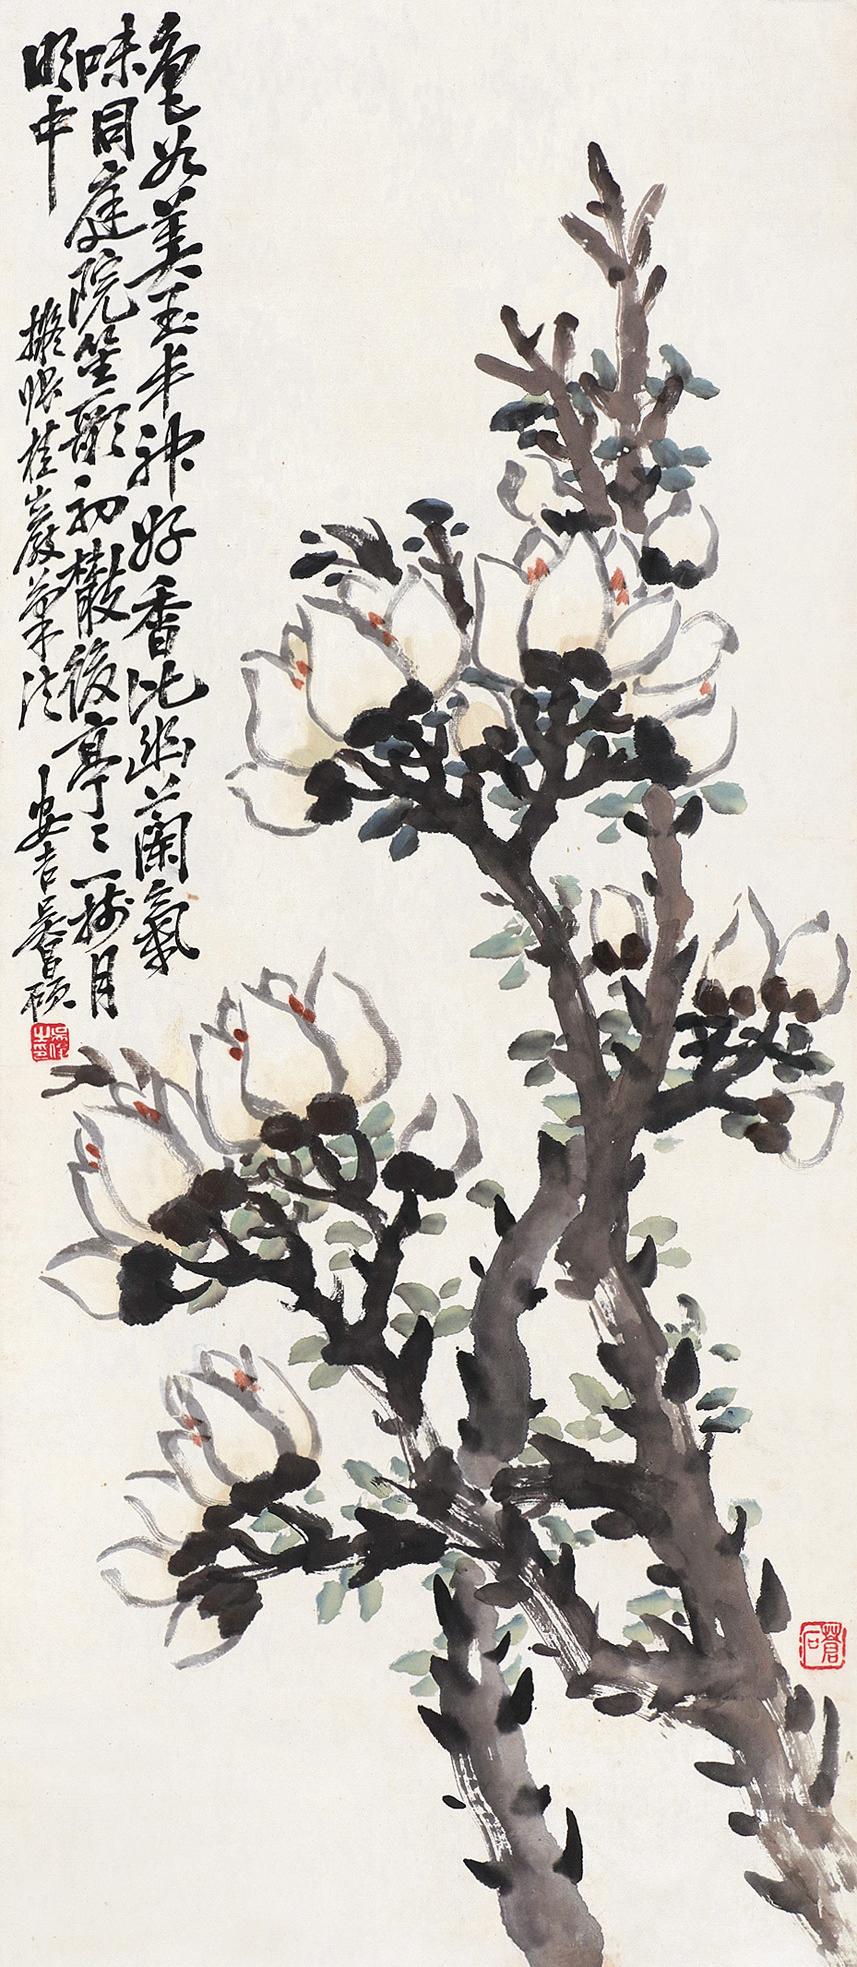 色如美玉丰神好香比幽蘭氣
味同庭院笙歌初散後亭亭一樹月
明中
擬張桂巖筆法 安吉吳昌碩
吳俊之印
蒼石